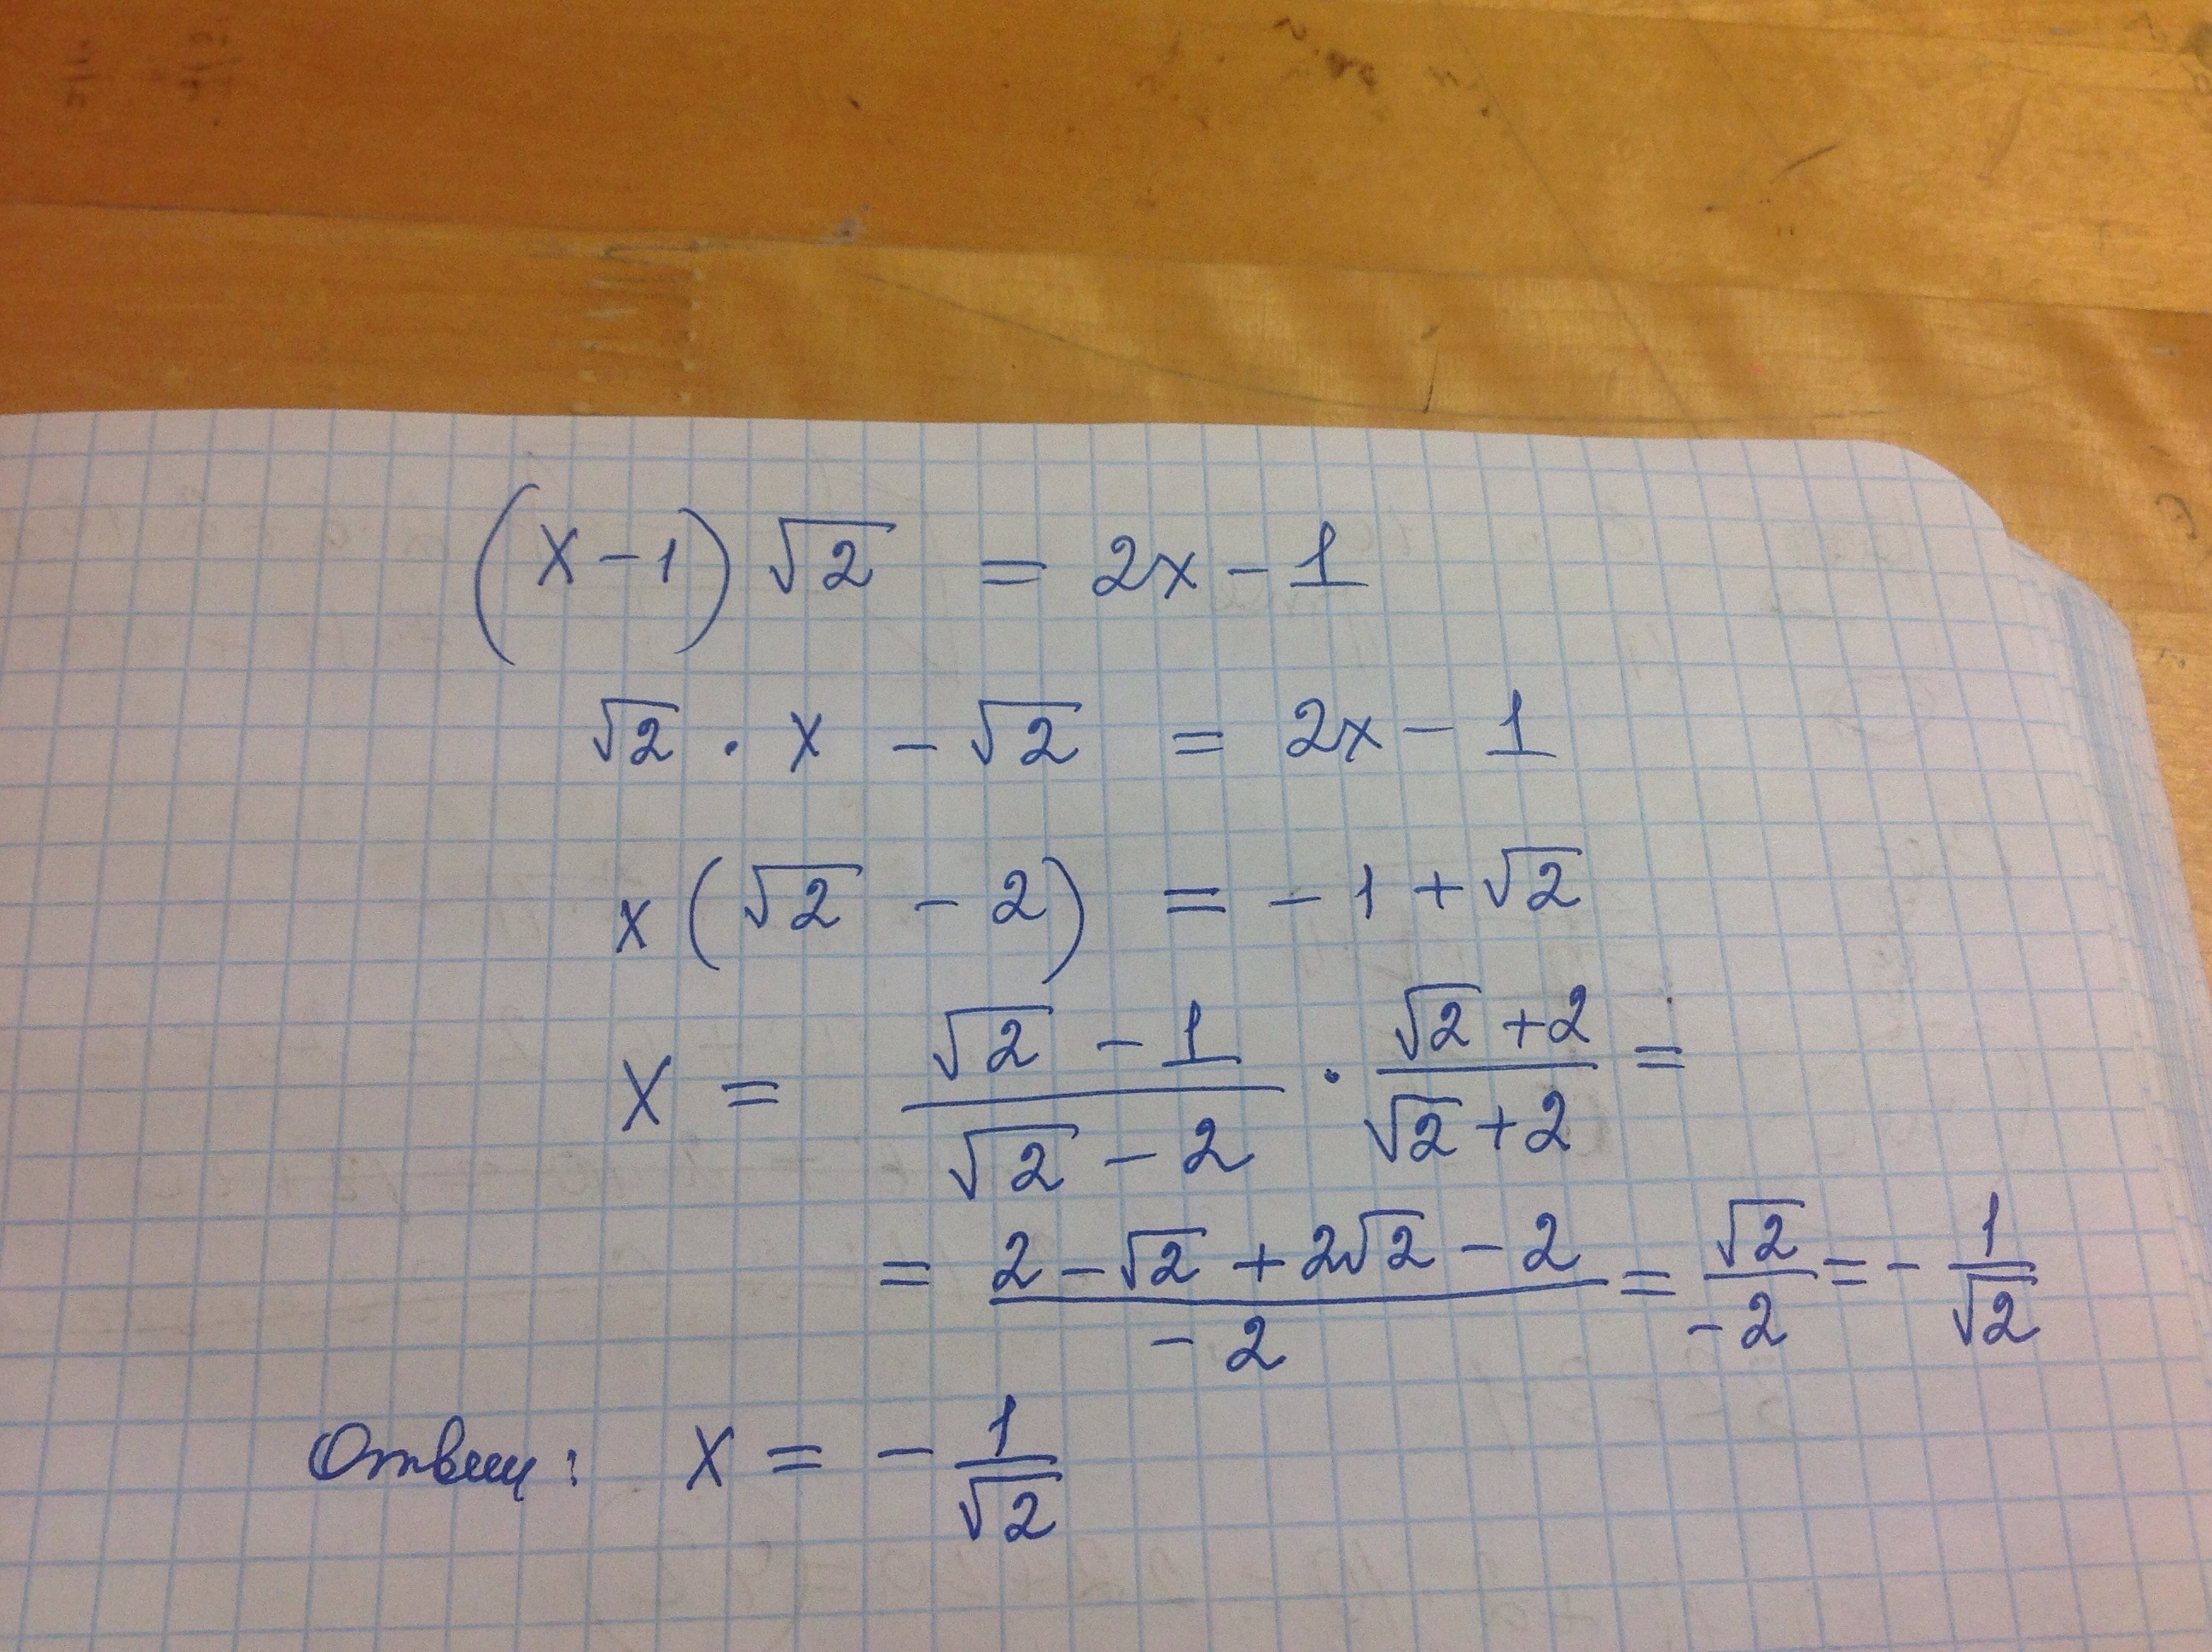 (x-1)√2 = 2x-1
√2 · x - √2 = 2x - 1
x(√2 - 2) = -1 + √2
x = (√2 - 1)/(√2 - 2) · (√2 + 2)/(√2 + 2) =
= (2 - √2 + 2√2 - 2)/(-2) = √2/(-2) = - 1/√2
Ответ: x = - 1/√2